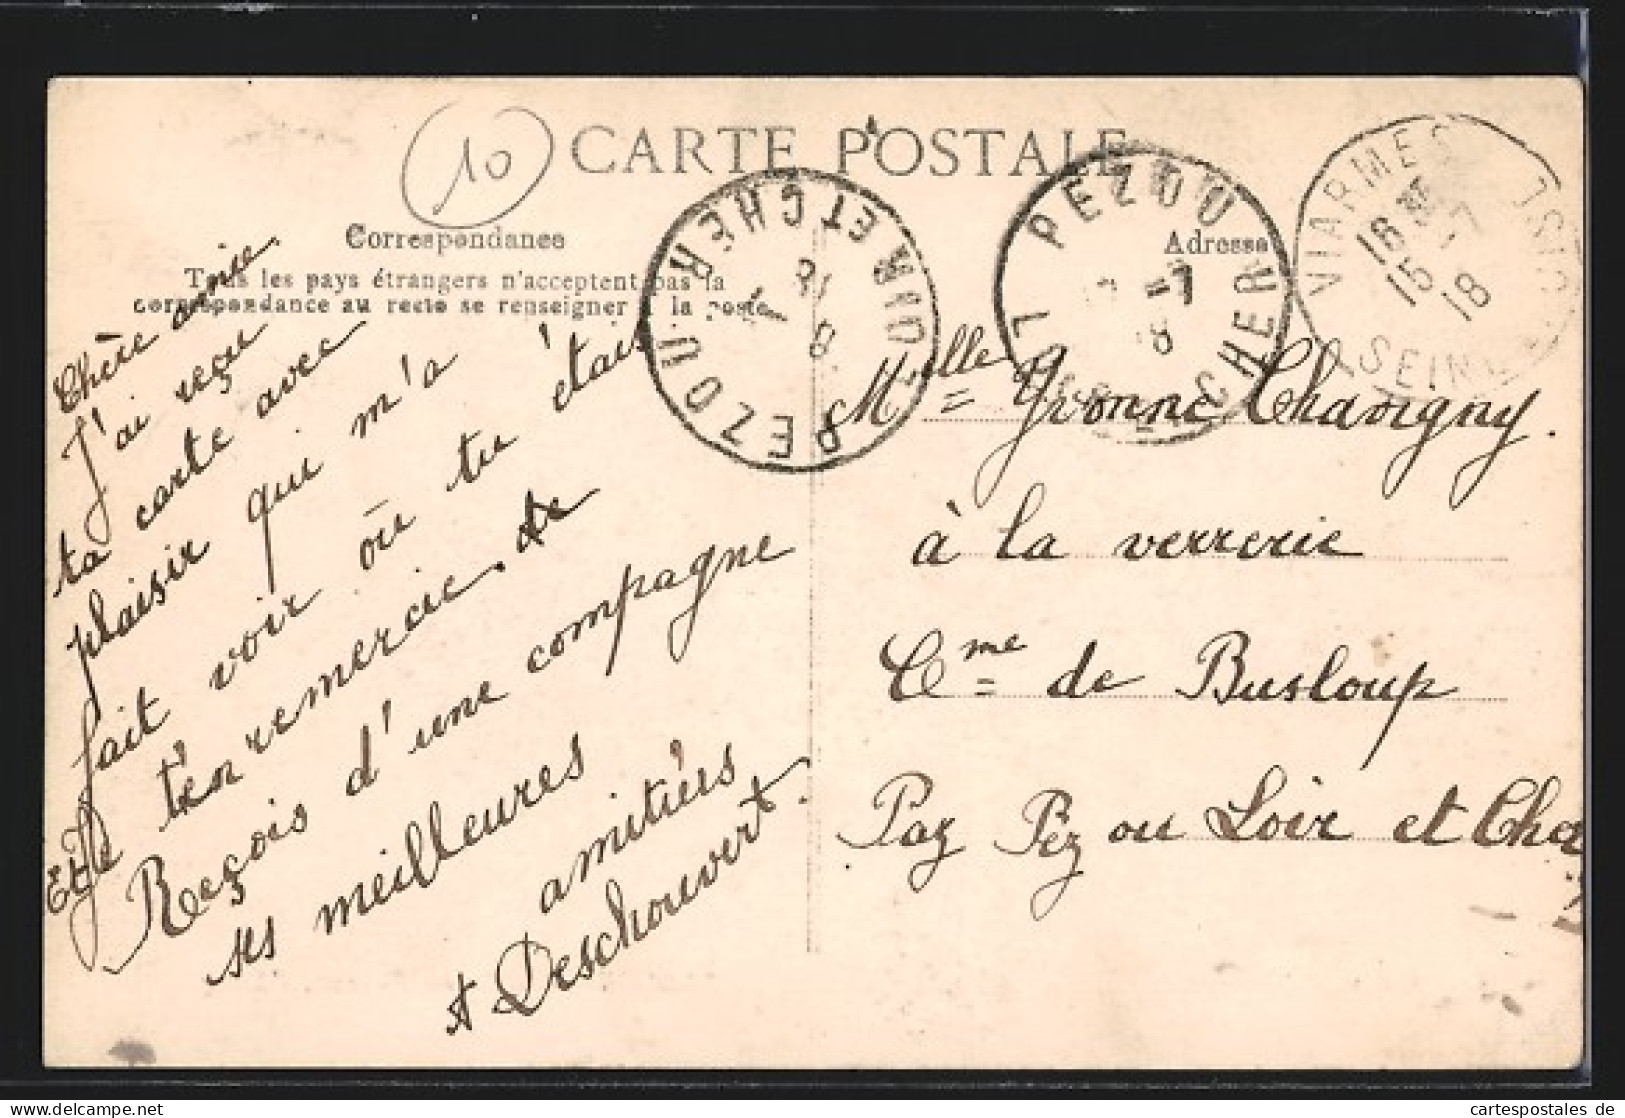 10
CARTE POSTALE
Correspondance
Tous les pays étrangers n'acceptent pas la
correspondance au recto se renseigner à la poste
Adresse
PEZOU LOIR ET CHER
18
7
8
PEZOU
CHER
VIARMES
16
15 7
18
SEINE
OISE
Chère amie
J'ai reçu
ta carte avec
plaisir qui m'a
fait voir où tu étais
Et je t'en remercie. de
Reçois d'une compagne
ses meilleures
amitiés
A Deschouvert.
Melle Yvonne Chavigny.
à la verrerie
Cme de Busloup
Par Péz ou Loir et Cher